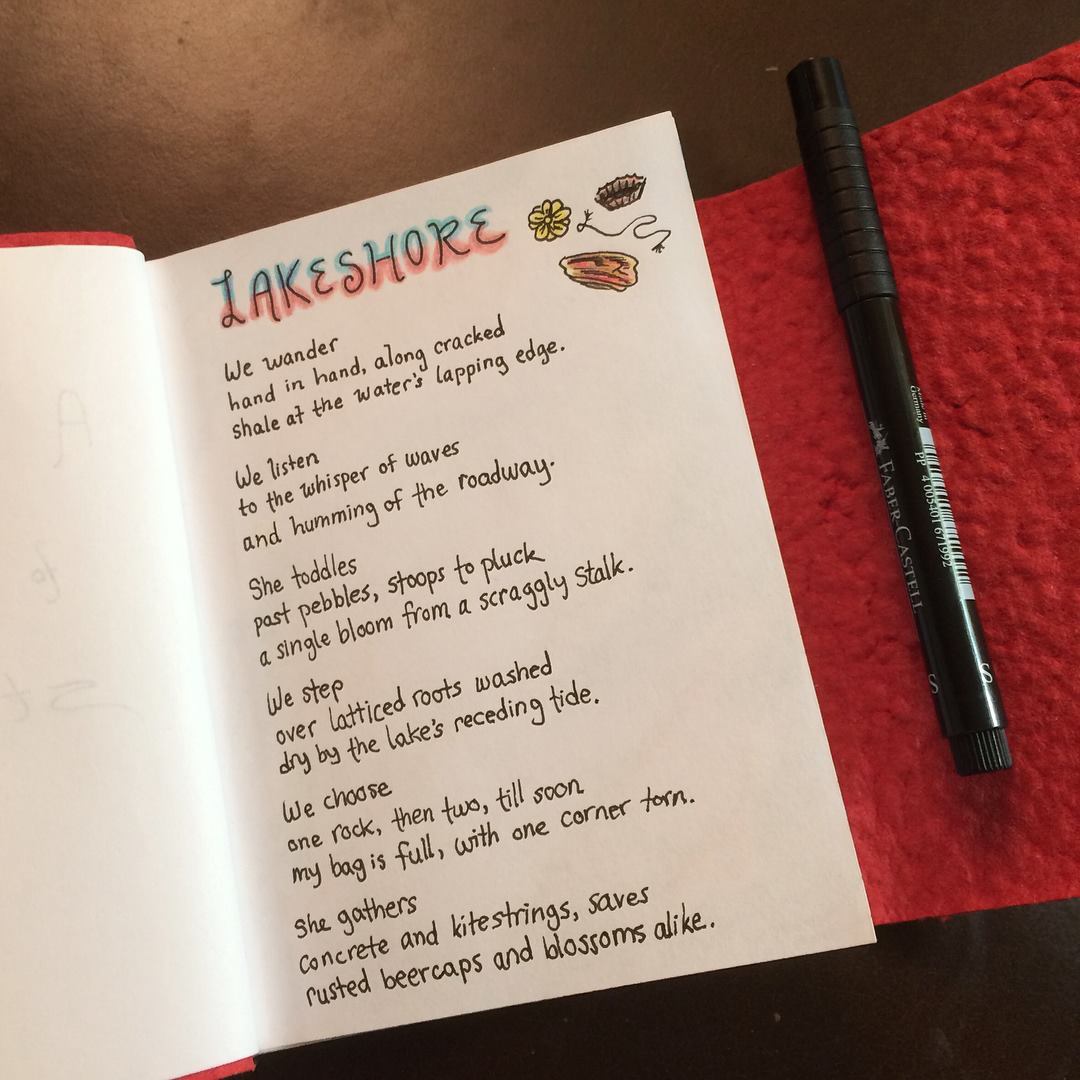 LAKESHORE
We wander
hand in hand, along cracked
shale at the water's lapping edge.
We listen
to the whisper of waves
and humming of the roadway.
She toddles
past pebbles, stoops to pluck
a single bloom from a scraggly stalk.
We step
over latticed roots washed
dry by the lake's receding tide.
We choose
one rock, then two, till soon
my bag is full, with one corner torn.
She gathers
concrete and kitestrings, saves
rusted beercaps and blossoms alike.
FABER-CASTELL
Germany
PP 4 005401 671992
S
S